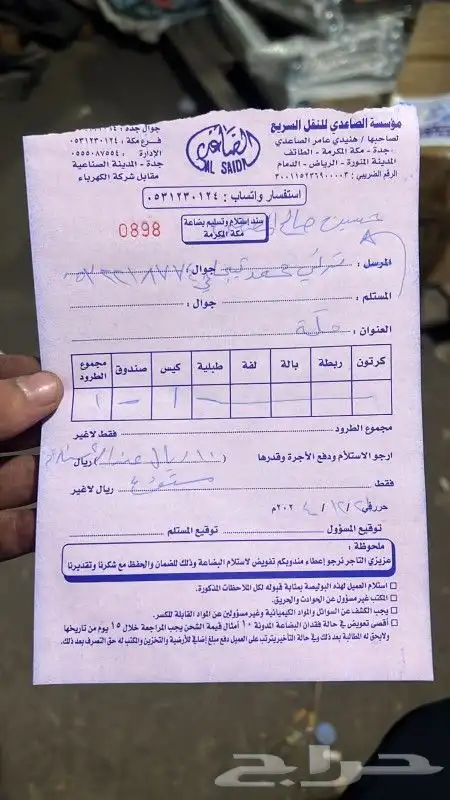 مؤسسة الصاعدي للنقل السريع
لصاحبها / هنيدي عامر الصاعدي
جدة - مكة المكرمة - الطائف
المدينة المنورة - الرياض - الدمام
الرقم الضريبي : ٣٠٠١١٥٢٣٦٩١٠٠٠٠٣
الصاعدي
AL SAIDI
فرع مكة : ٠٥٣١٢٣٠١٢٤
الإدارة : ٠٥٥٥٠٨٧٥٥٤
جدة - المدينة الصناعية
مقابل شركة الكهرباء
استفسار واتساب : ٠٥٣١٢٣٠١٢٤
حسين صالح
سند إستلام وتسليم بضاعة
مكة المكرمة
0898
المرسل : تركي محمد جوال :
المستلم : جوال :
العنوان : مكة
كرتون ربطة بالة لفة طبلية كيس صندوق مجموع الطرود
— — — — — ١ — ١
مجموع الطرود فقط لاغير
ارجو الاستلام ودفع الأجرة وقدرها ( ١٠ ريال عند ) ريال
فقط ريال لاغير
حرر في / ١٢ / ٢٠٢٤م
توقيع المسؤول توقيع المستلم
ملحوظة :
عزيزي التاجر نرجو إعطاء مندوبكم تفويض لاستلام البضاعة وذلك للضمان والحفظ مع شكرنا وتقديرنا
استلام العميل لهذه البوليصة بمثابة قبوله لكل الملاحظات المذكورة.
المكتب غير مسؤول عن الحوادث والحريق.
يجب الكشف عن السوائل والمواد الكيميائية وغير مسؤولين عن المواد القابلة للكسر.
أقصى تعويض في حالة فقدان البضاعة المدونة ١٠ أمثال قيمة الشحن يجب المراجعة خلال ١٥ يوم من تاريخها
ولايحق له المطالبة بعد ذلك وفي حالة التأخير يترتب على العميل دفع مبلغ إضافي للأرضية والتخزين وللمكتب له حق التصرف بعد ذلك.
حراج